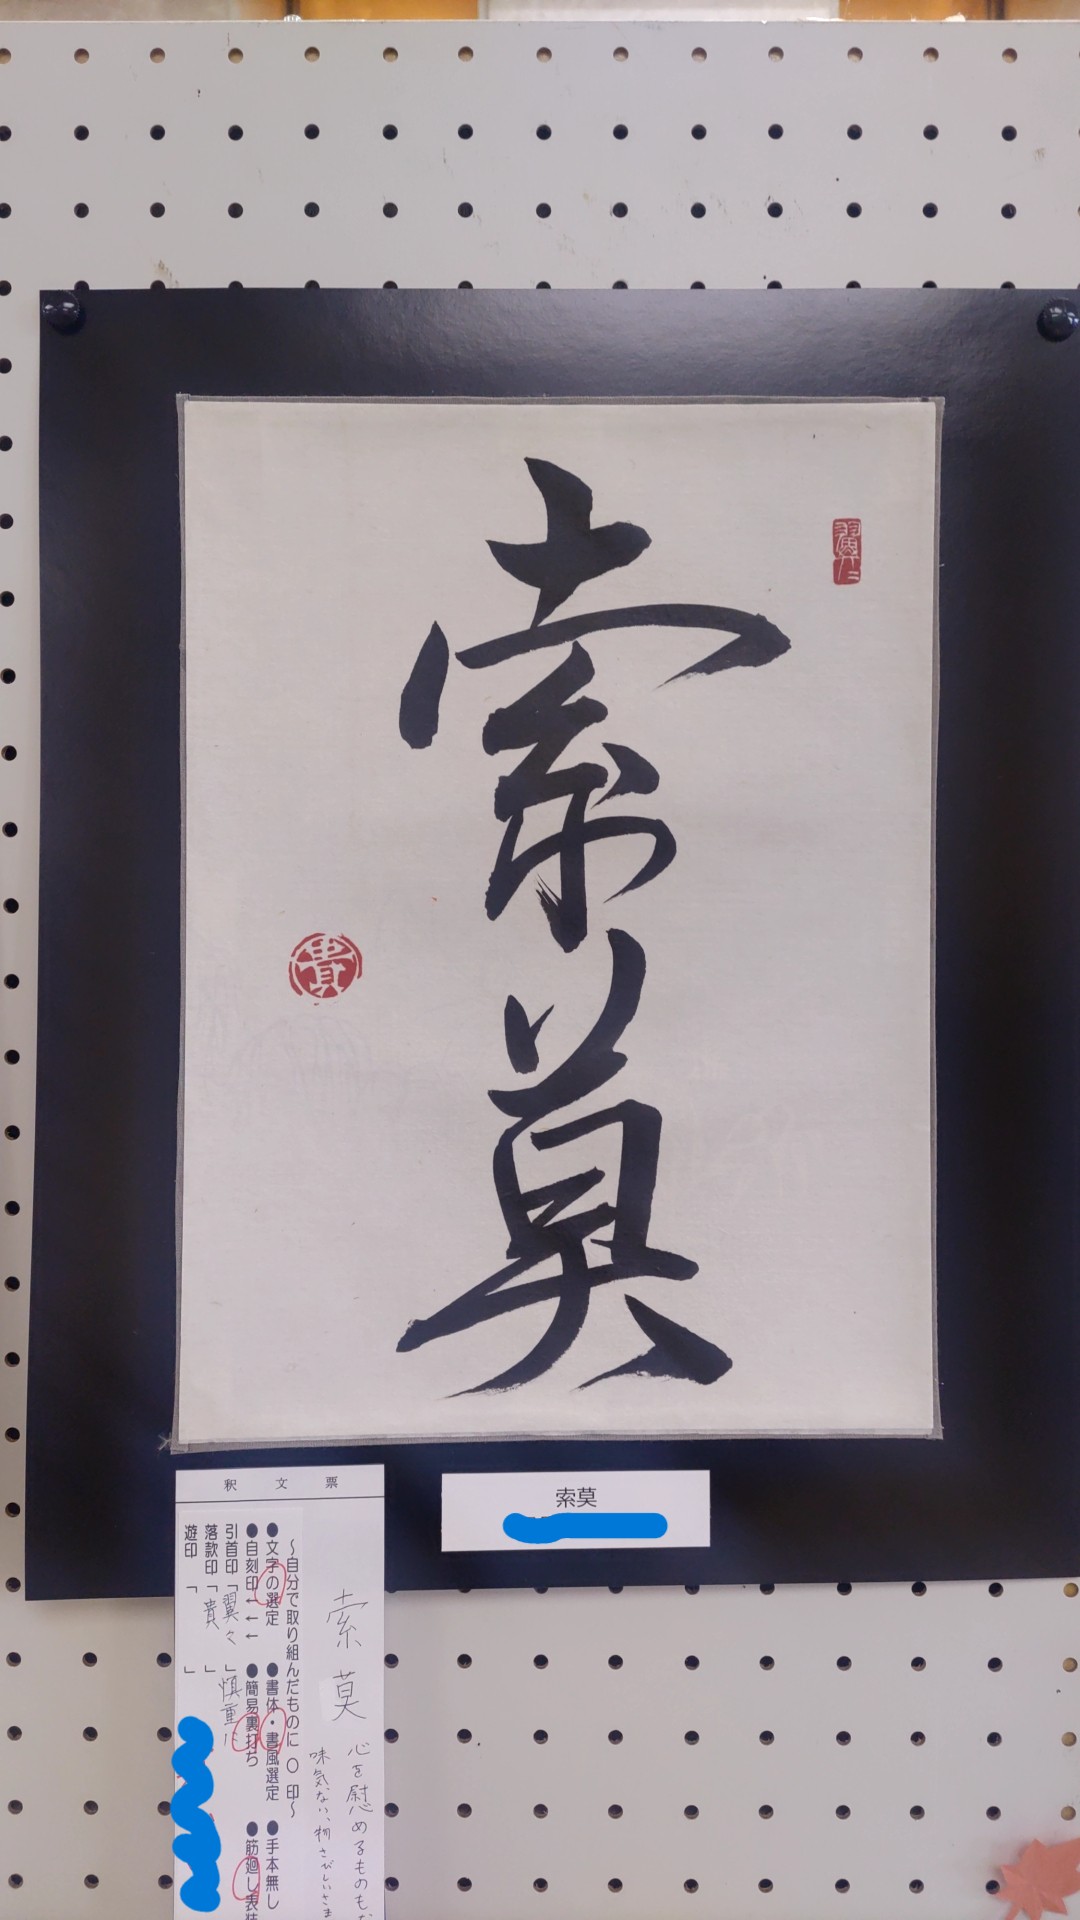 索莫
翼々
貴
索莫
釈文票
索莫
心を慰めるものもな
味気ない、物さびしいさま
～自分で取り組んだものに ○ 印～
●文字の選定 ●書体・書風選定 ●手本無し
●自刻印←←← ●簡易裏打ち ●筋廻し表装
引首印「翼々」慎重に
落款印「貴」
遊印「 」